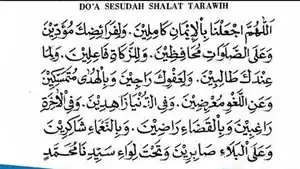 DO'A SESUDAH SHALAT TARAWIH
اَللّٰهُمَّ اجْعَلْنَا بِالْإِيْمَانِ كَامِلِيْنَ. وَلِفَرَائِضِكَ مُؤَدِّيْنَ
وَعَلَى الصَّلَوَاتِ مُحَافِظِيْنَ. وَلِلزَّكَاةِ فَاعِلِيْنَ. وَلِمَا
عِنْدَكَ طَالِبِيْنَ. وَلِعَفْوِكَ رَاجِيْنَ وَبِالْهُدَى مُتَمَسِّكِيْنَ
وَعَنِ اللَّغْوِ مُعْرِضِيْنَ. وَفِى الدُّنْيَا زَاهِدِيْنَ. وَفِى الْآخِرَةِ
رَاغِبِيْنَ وَبِالْقَضَاءِ رَاضِيْنَ. وَبِالنَّعْمَاءِ شَاكِرِيْنَ
وَعَلَى الْبَلَاءِ صَابِرِيْنَ وَتَحْتَ لِوَاءِ سَيِّدِنَا مُحَمَّدٍ